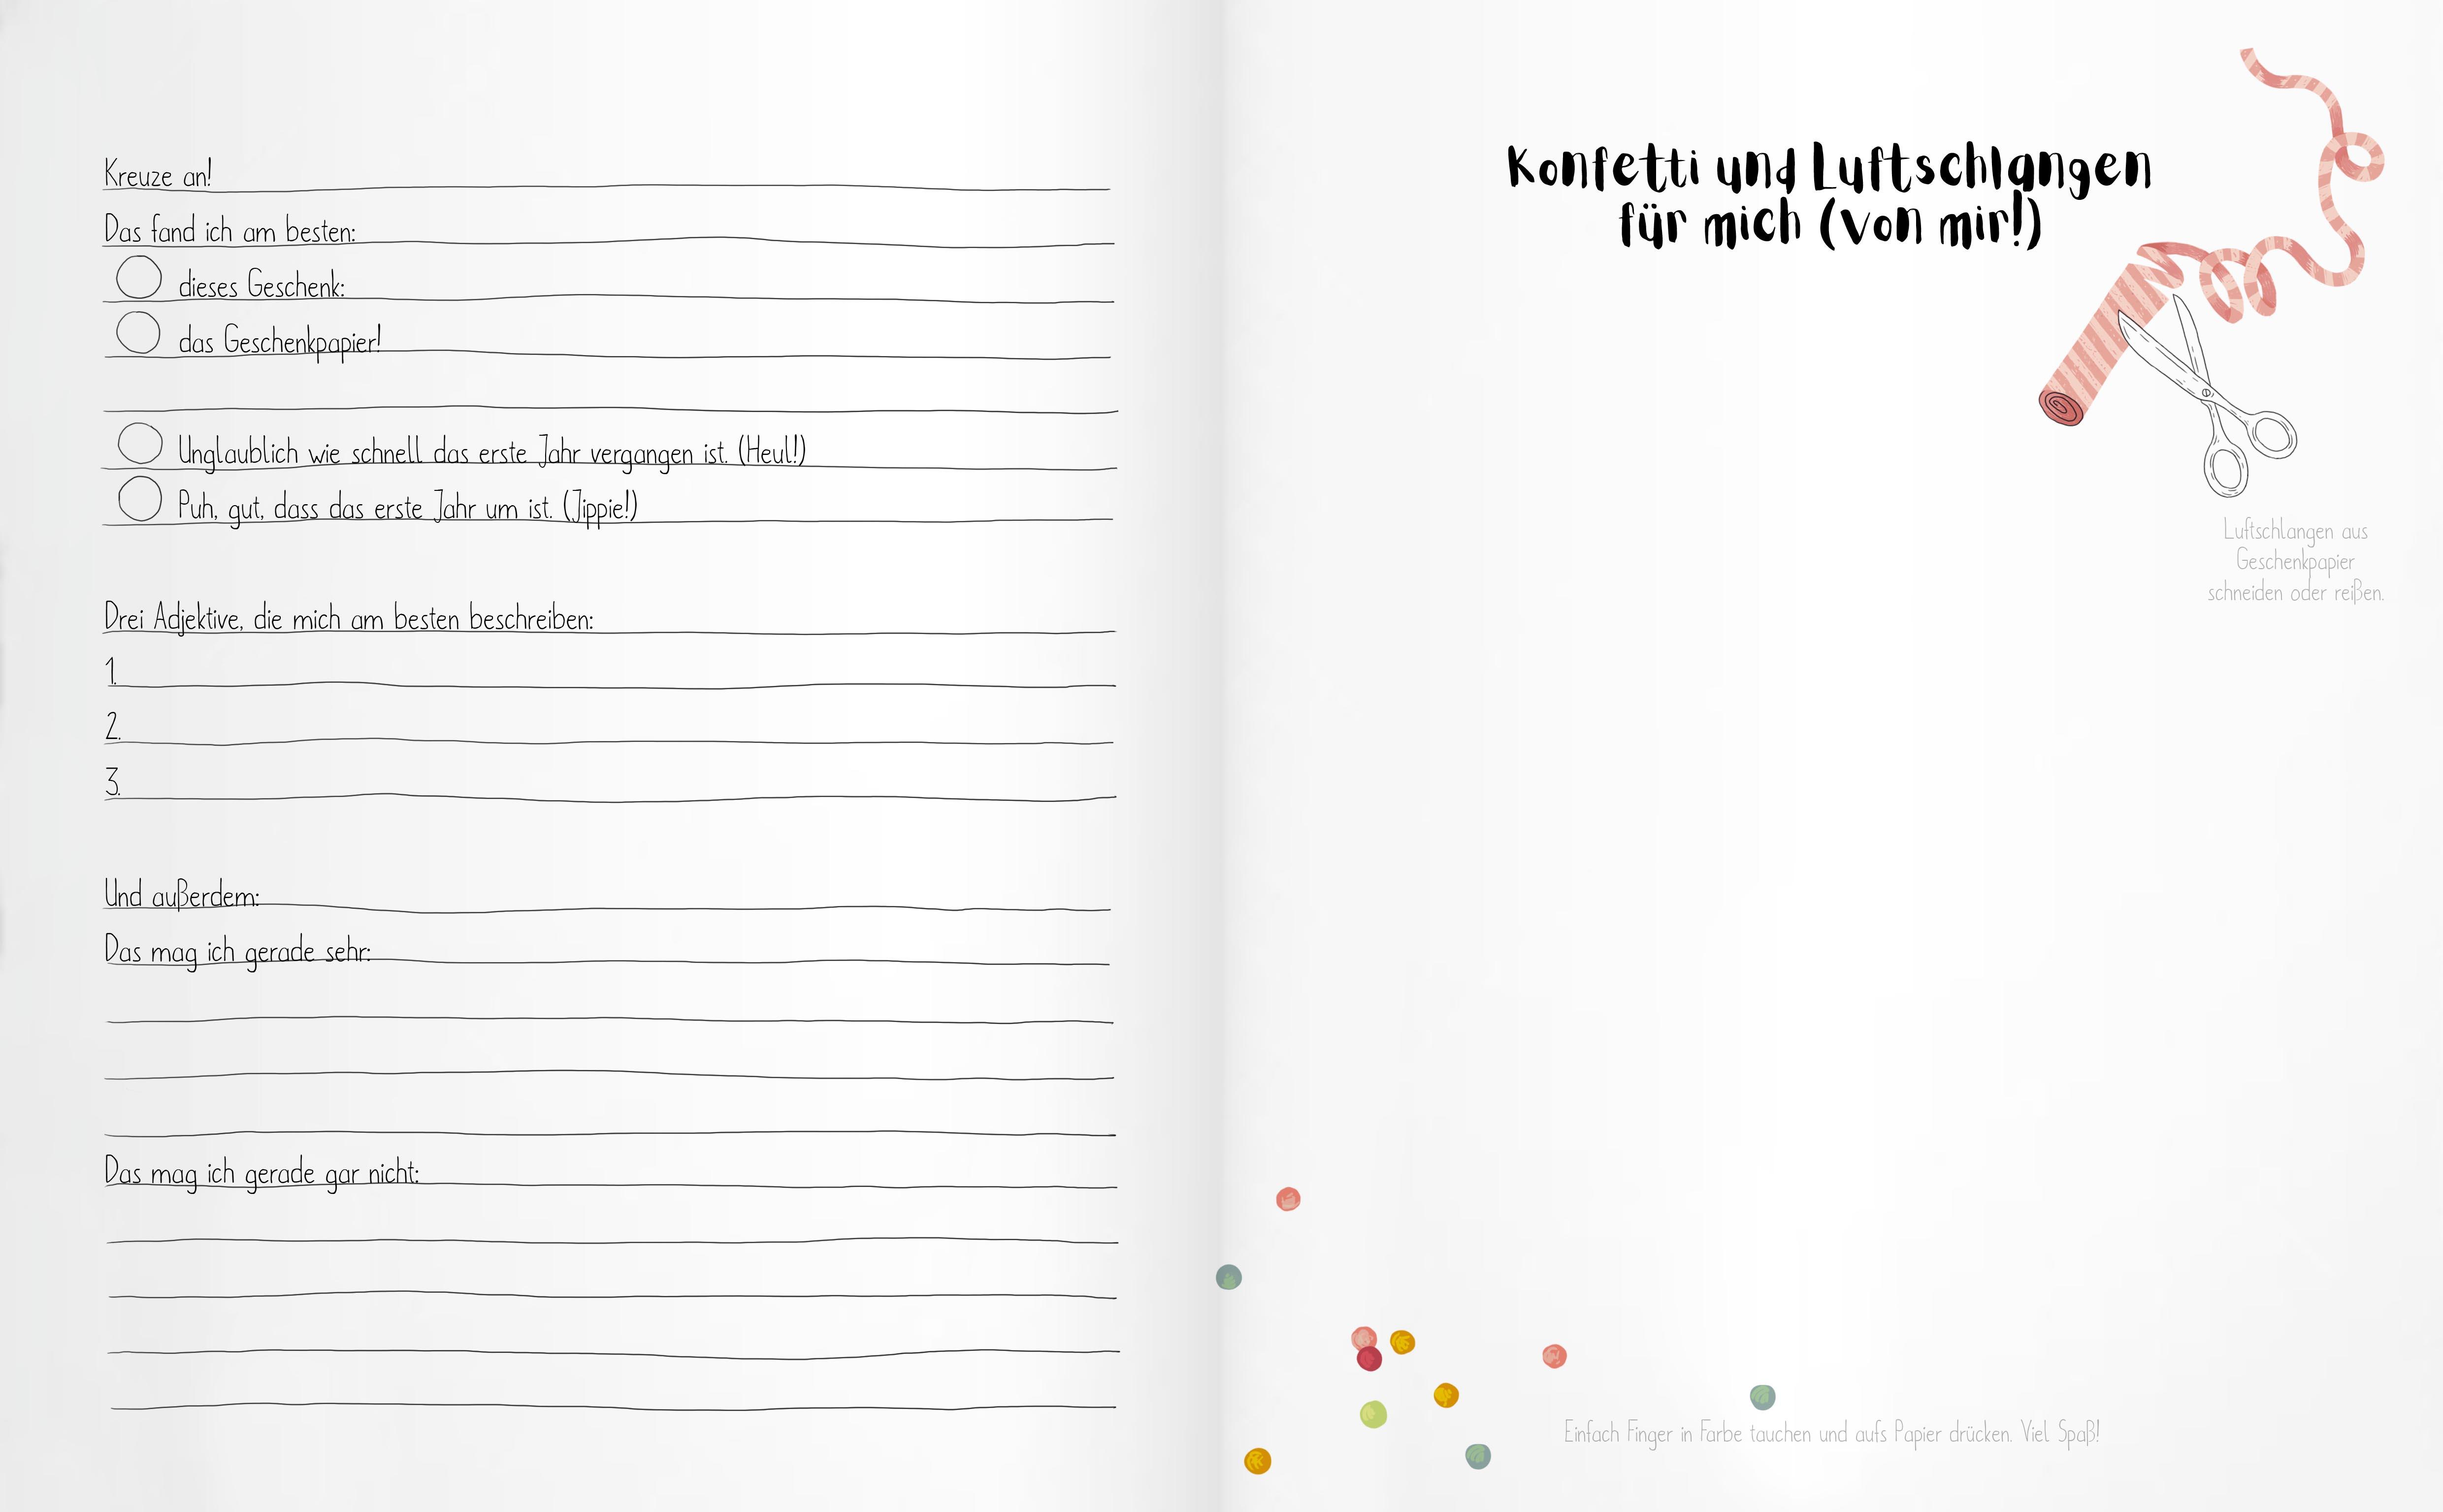 Kreuze an!
Das fand ich am besten:
dieses Geschenk:
das Geschenkpapier!
Unglaublich wie schnell das erste Jahr vergangen ist. (Heul!)
Puh, gut, dass das erste Jahr um ist. (Jippie!)
Drei Adjektive, die mich am besten beschreiben:
1.
2.
3.
Und außerdem:
Das mag ich gerade sehr:
Das mag ich gerade gar nicht:
Konfetti und Luftschlangen
für mich (von mir!)
Luftschlangen aus
Geschenkpapier
schneiden oder reißen.
Einfach Finger in Farbe tauchen und aufs Papier drücken. Viel Spaß!